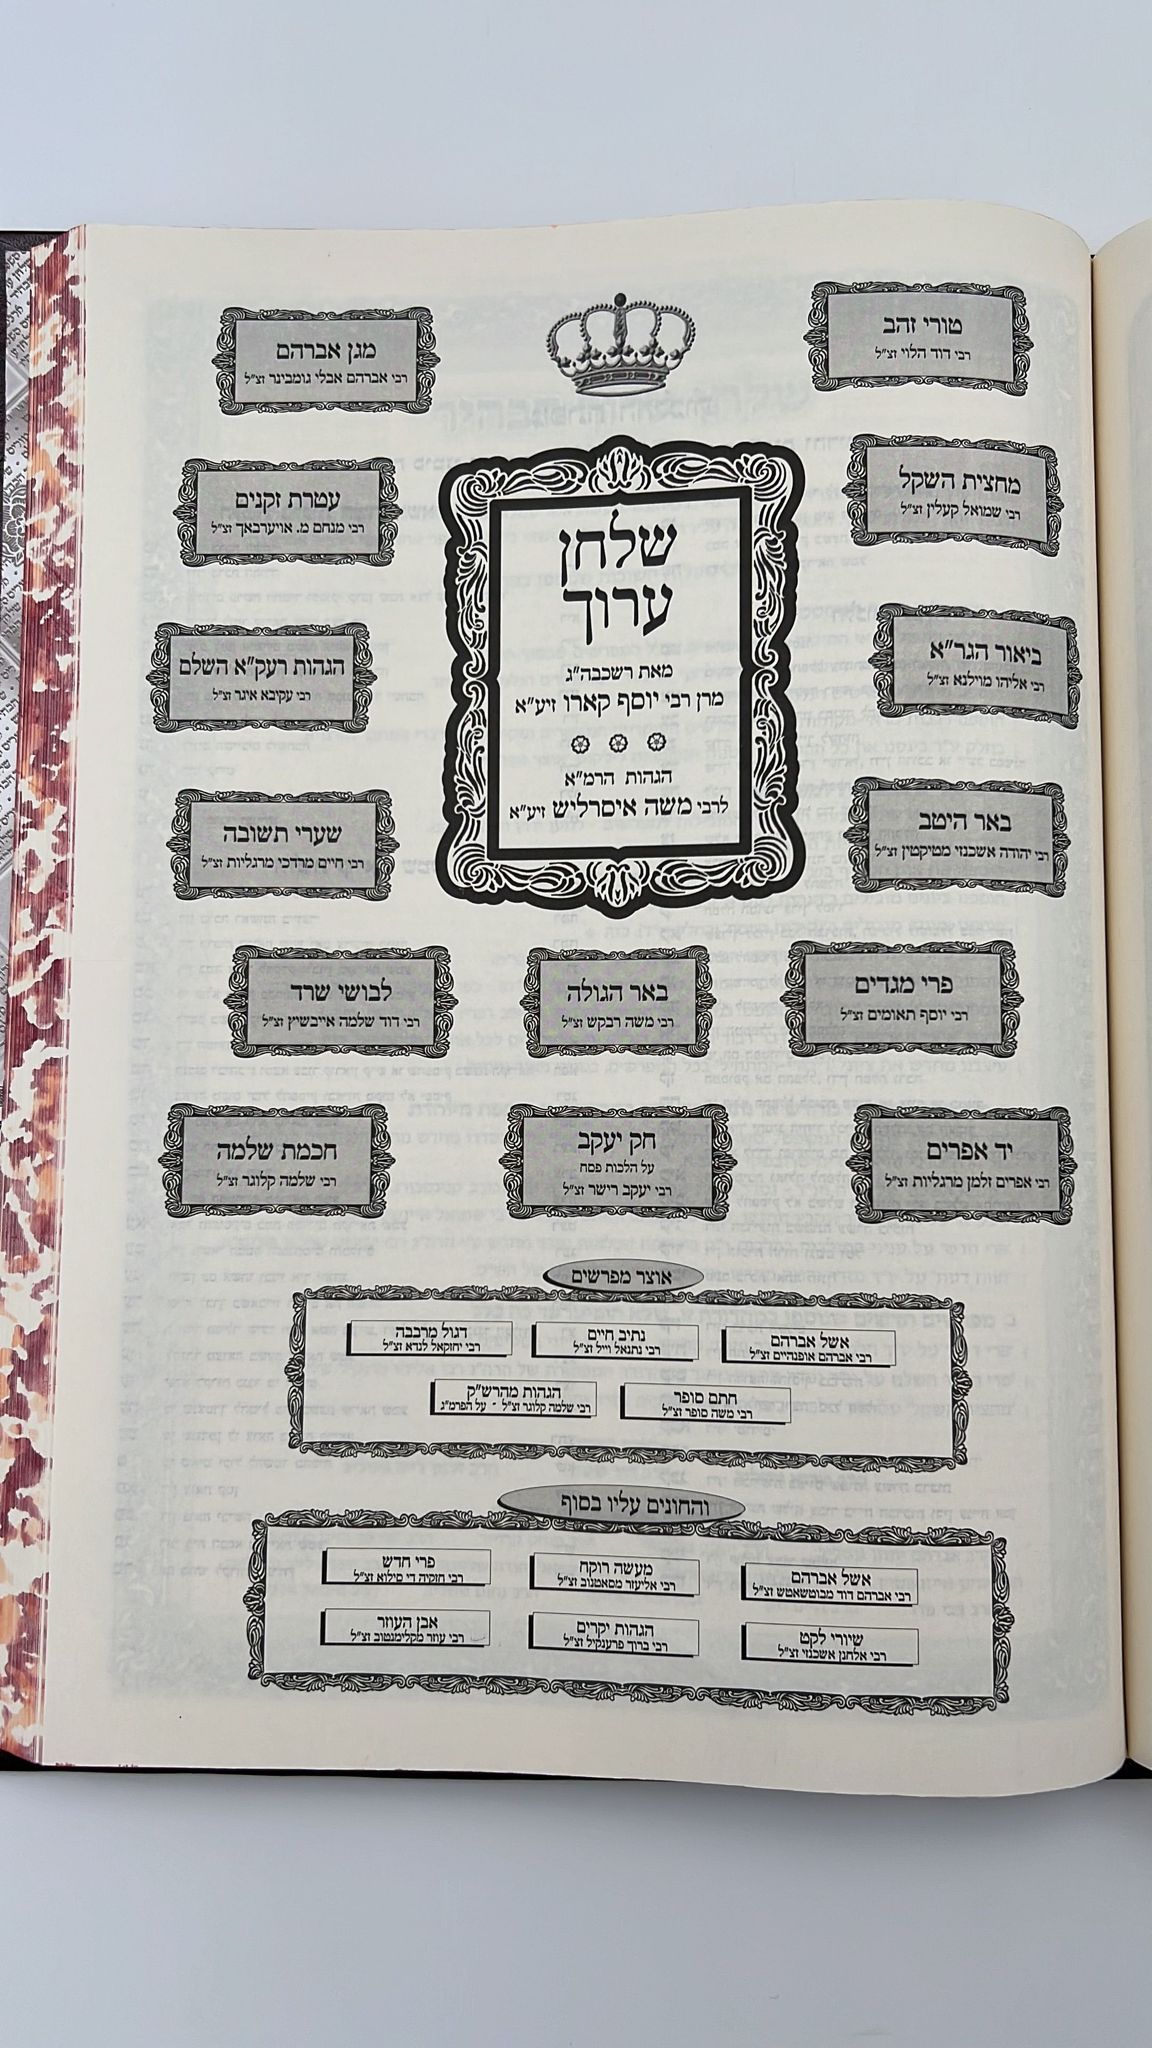 טורי זהב
רבי דוד הלוי זצ"ל
מגן אברהם
רבי אברהם אבלי גומבינר זצ"ל
מחצית השקל
רבי שמואל קעלין זצ"ל
עטרת זקנים
רבי מנחם מ. אויערבאך זצ"ל
שלחן
ערוך
מאת רשכבה"ג
מרן רבי יוסף קארו זיע"א
הגהות הרמ"א
לרבי משה איסרליש זיע"א
ביאור הגר"א
רבי אליהו מוילנא זצ"ל
הגהות רעק"א השלם
רבי עקיבא איגר זצ"ל
באר היטב
רבי יהודה אשכנזי מטיקטין זצ"ל
שערי תשובה
רבי חיים מרדכי מרגליות זצ"ל
פרי מגדים
רבי יוסף תאומים זצ"ל
באר הגולה
רבי משה רבקש זצ"ל
לבושי שרד
רבי דוד שלמה אייבשיץ זצ"ל
יד אפרים
רבי אפרים זלמן מרגליות זצ"ל
חק יעקב
על הלכות פסח
רבי יעקב רישר זצ"ל
חכמת שלמה
רבי שלמה קלוגר זצ"ל
אוצר מפרשים
אשל אברהם
רבי אברהם אופנהיים זצ"ל
נתיב חיים
רבי נתנאל ווייל זצ"ל
דגול מרבבה
רבי יחזקאל לנדא זצ"ל
חתם סופר
רבי משה סופר זצ"ל
הגהות מהרש"ק
רבי שלמה קלוגר זצ"ל - על הפרמ"ג
והחונים עליו בסוף
אשל אברהם
רבי אברהם דוד מבוטשאטש זצ"ל
מעשה רוקח
רבי אליעזר מסאטנוב זצ"ל
פרי חדש
רבי חזקיה די סילוא זצ"ל
שיורי לקט
רבי אלחנן אשכנזי זצ"ל
הגהות יקרים
רבי ברוך פרענקיל זצ"ל
אבן העוזר
רבי עוזר מקלימנטוב זצ"ל